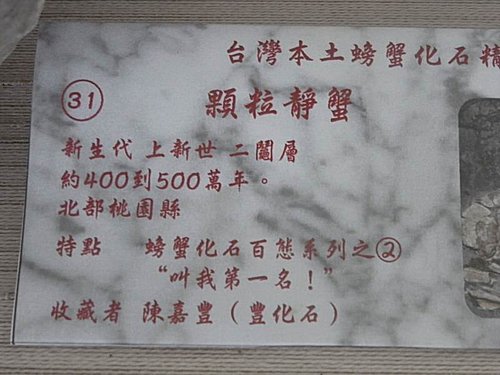 台灣本土螃蟹化石精
31 顆粒靜蟹
新生代 上新世 二鬮層
約400到500萬年。
北部桃園縣
特點 螃蟹化石百態系列之②
“叫我第一名！”
收藏者 陳嘉豐（豐化石）